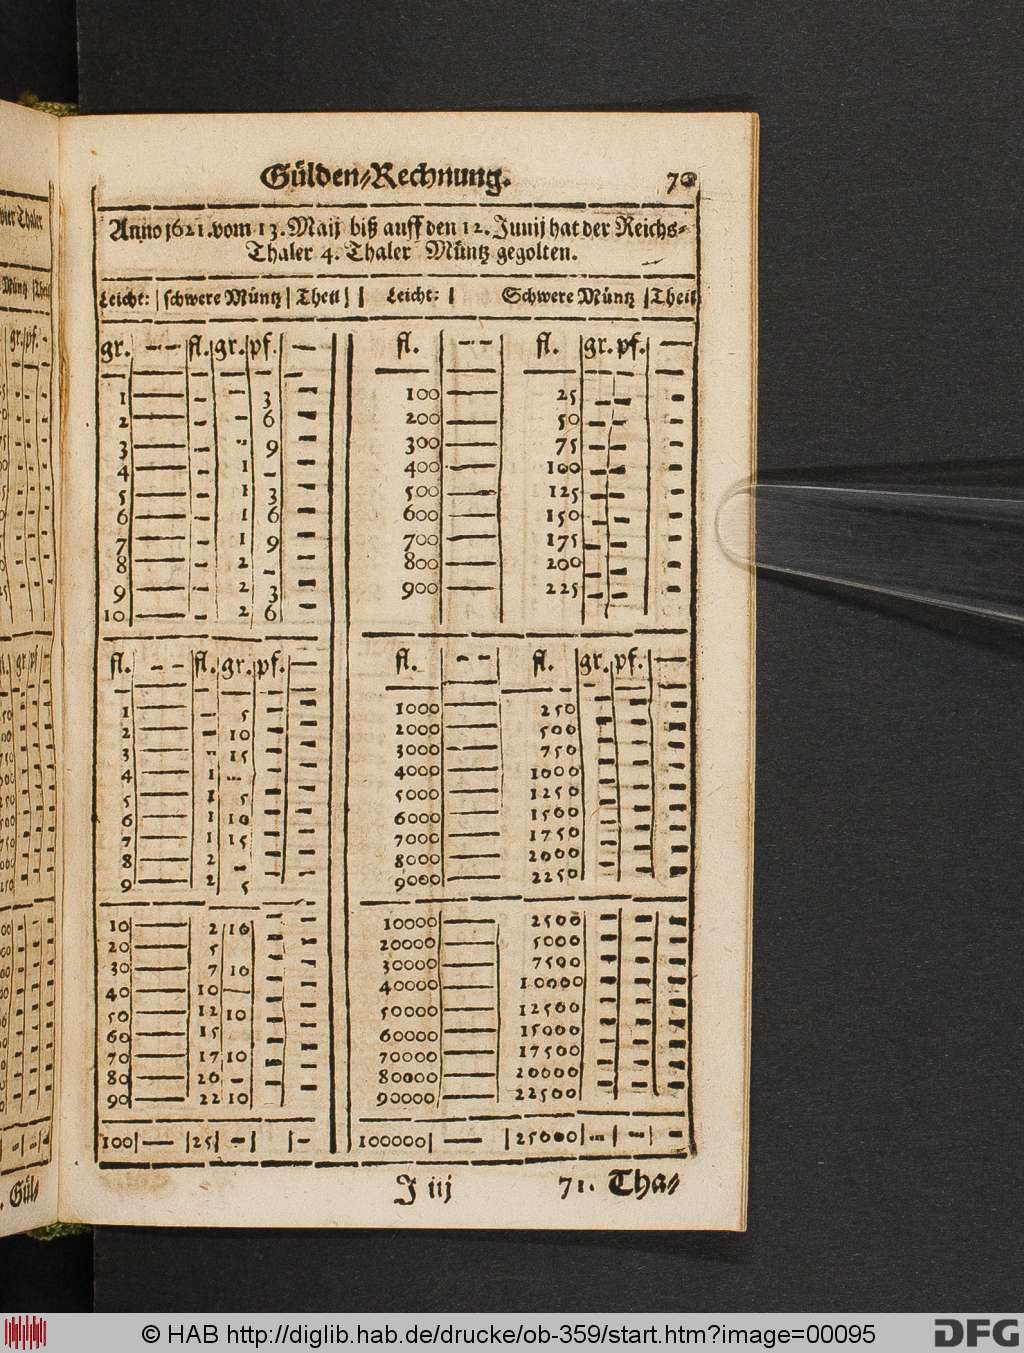 Gülden-Rechnung. 70
Anno 1621. vom 13. Maij biß auff den 12. Junij hat der Reichs-
Thaler 4. Thaler Müntz gegolten.
Leicht: | schwere Müntz | Theil | Leicht: | Schwere Müntz | Theil
gr. — — fl. gr. pf. —
1 — - - 3 -
2 — - - 6 -
3 — - - 9 -
4 — - 1 - -
5 — - 1 3 -
6 — - 1 6 -
7 — - 1 9 -
8 — - 2 - -
9 — - 2 3 -
10 — - 2 6 -
fl. - - fl. gr. pf. —
1 — - 5 - -
2 — - 10 - -
3 — - 15 - -
4 — 1 - - -
5 — 1 5 - -
6 — 1 10 - -
7 — 1 15 - -
8 — 2 - - -
9 — 2 5 - -
10 — 2 10 - -
20 — 5 - -
30 — 7 10 - -
40 — 10 — - -
50 — 12 10 - -
60 — 15 - -
70 — 17 10 - -
80 — 20 - - -
90 — 22 10 - -
100 — 25 - -
fl. - - fl. gr. pf. —
100 — 25 - - -
200 — 50 - - -
300 — 75 - - -
400 — 100 - - -
500 — 125 - - -
600 — 150 - - -
700 — 175 - - -
800 — 200 - - -
900 — 225 - - -
fl. - - fl. gr. pf. —
1000 — 250 - - -
2000 — 500 - - -
3000 — 750 - - -
4000 — 1000 - - -
5000 — 1250 - - -
6000 — 1500 - - -
7000 — 1750 - - -
8000 — 2000 - - -
9000 — 2250 - - -
10000 — 2500 - - -
20000 — 5000 - - -
30000 — 7500 - - -
40000 — 10000 - - -
50000 — 12500 - - -
60000 — 15000 - - -
70000 — 17500 - - -
80000 — 20000 - - -
90000 — 22500 - - -
100000 — 25000 - - -
J iij 71. Tha-
© HAB http://diglib.hab.de/drucke/ob-359/start.htm?image=00095
DFG